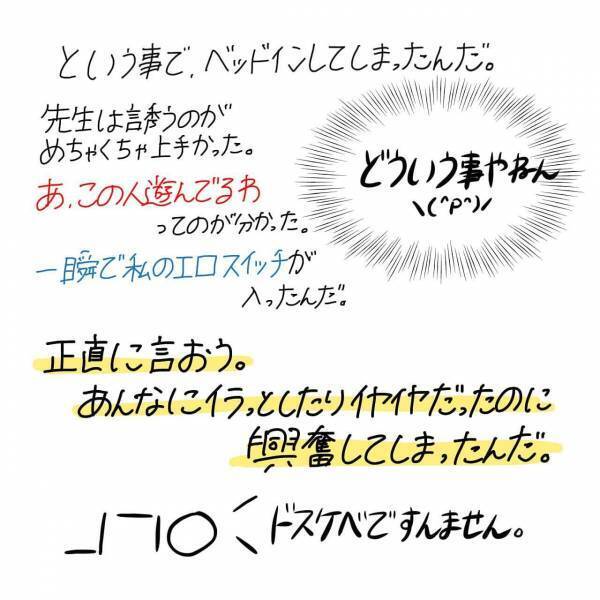 という事で、ベッドインしてしまったんだ。
どういう事やねん
\(^ρ^)/
先生は誘うのが
めちゃくちゃ上手かった。
あ、この人遊んでるわ
ってのが分かった。
一瞬で私のエロスイッチが
入ったんだ。
正直に言おう。
あんなにイラっとしたりイヤイヤだったのに
興奮してしまったんだ。
ドスケベですんません。